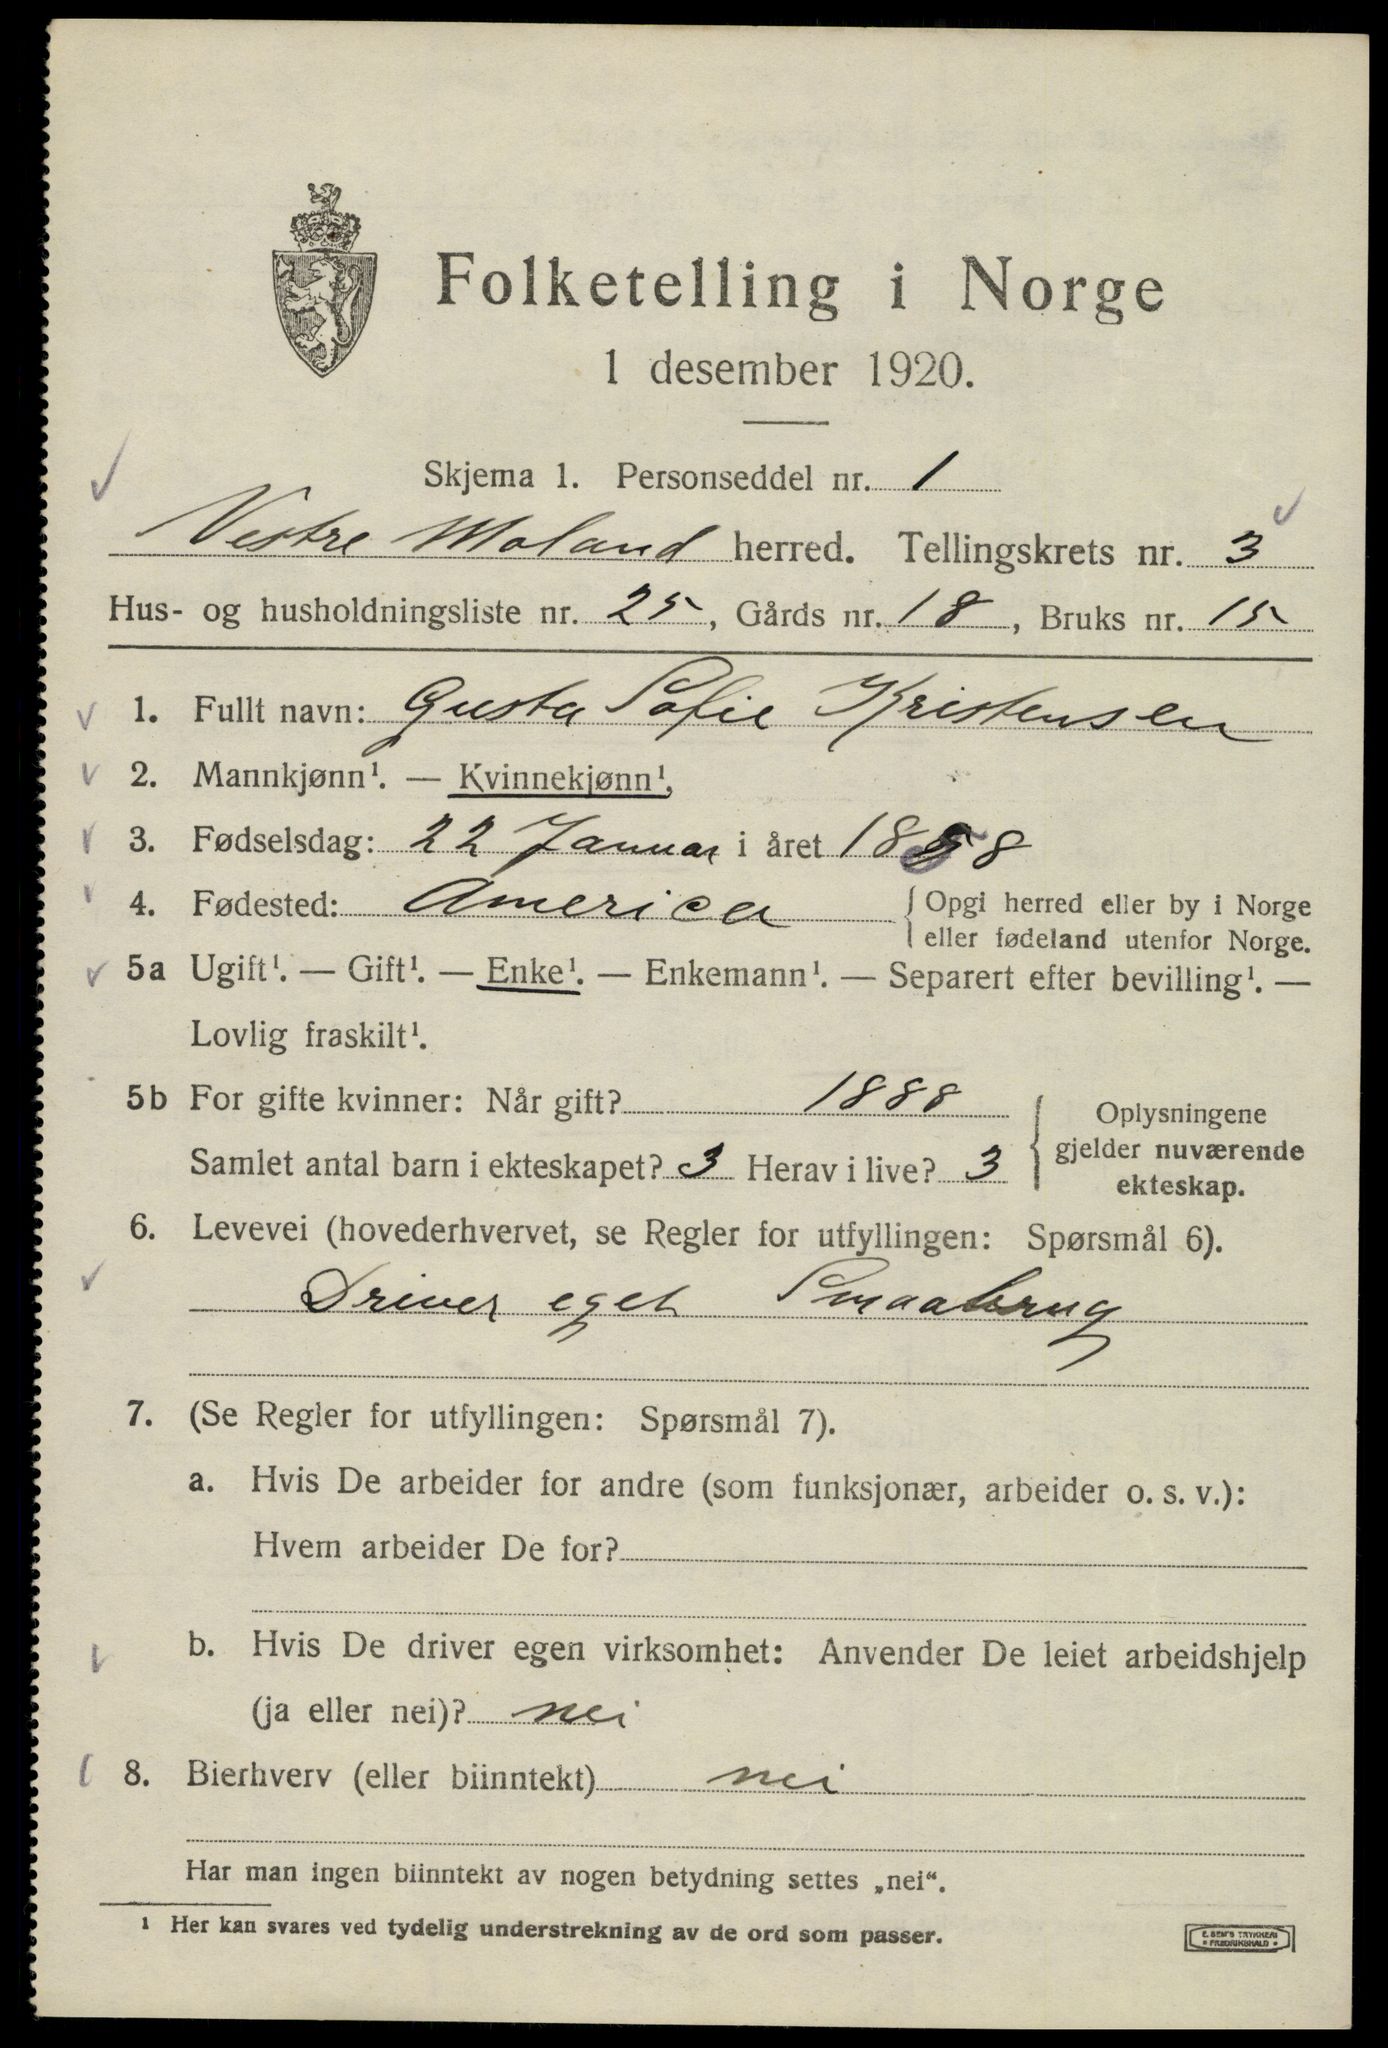 Folketelling i Norge
1 desember 1920.
Skjema 1. Personseddel nr. 1
Vestre Moland herred. Tellingskrets nr. 3
Hus- og husholdningsliste nr. 25, Gårds nr. 18, Bruks nr. 15
1. Fullt navn: Gusta Sofie Kristensen
2. Mannkjønn¹. — Kvinnekjønn¹.
3. Fødselsdag: 22 Januar i året 1858
4. Fødested: America { Opgi herred eller by i Norge
eller fødeland utenfor Norge.
5a Ugift¹. — Gift¹. — Enke¹. — Enkemann¹. — Separert efter bevilling¹. —
Lovlig fraskilt¹.
5b For gifte kvinner: Når gift? 1888
Samlet antal barn i ekteskapet? 3 Herav i live? 3
{ Oplysningene
gjelder nuværende
ekteskap.
6. Levevei (hovederhvervet, se Regler for utfyllingen: Spørsmål 6).
Driver eget Smaabrug
7. (Se Regler for utfyllingen: Spørsmål 7).
a. Hvis De arbeider for andre (som funksjonær, arbeider o. s. v.):
Hvem arbeider De for?
b. Hvis De driver egen virksomhet: Anvender De leiet arbeidshjelp
(ja eller nei)? nei
8. Bierhverv (eller biinntekt) nei
Har man ingen biinntekt av nogen betydning settes „nei“.
¹ Her kan svares ved tydelig understrekning av de ord som passer.
E. SEM'S TRYKKERI
• FREDRIKSHALD •